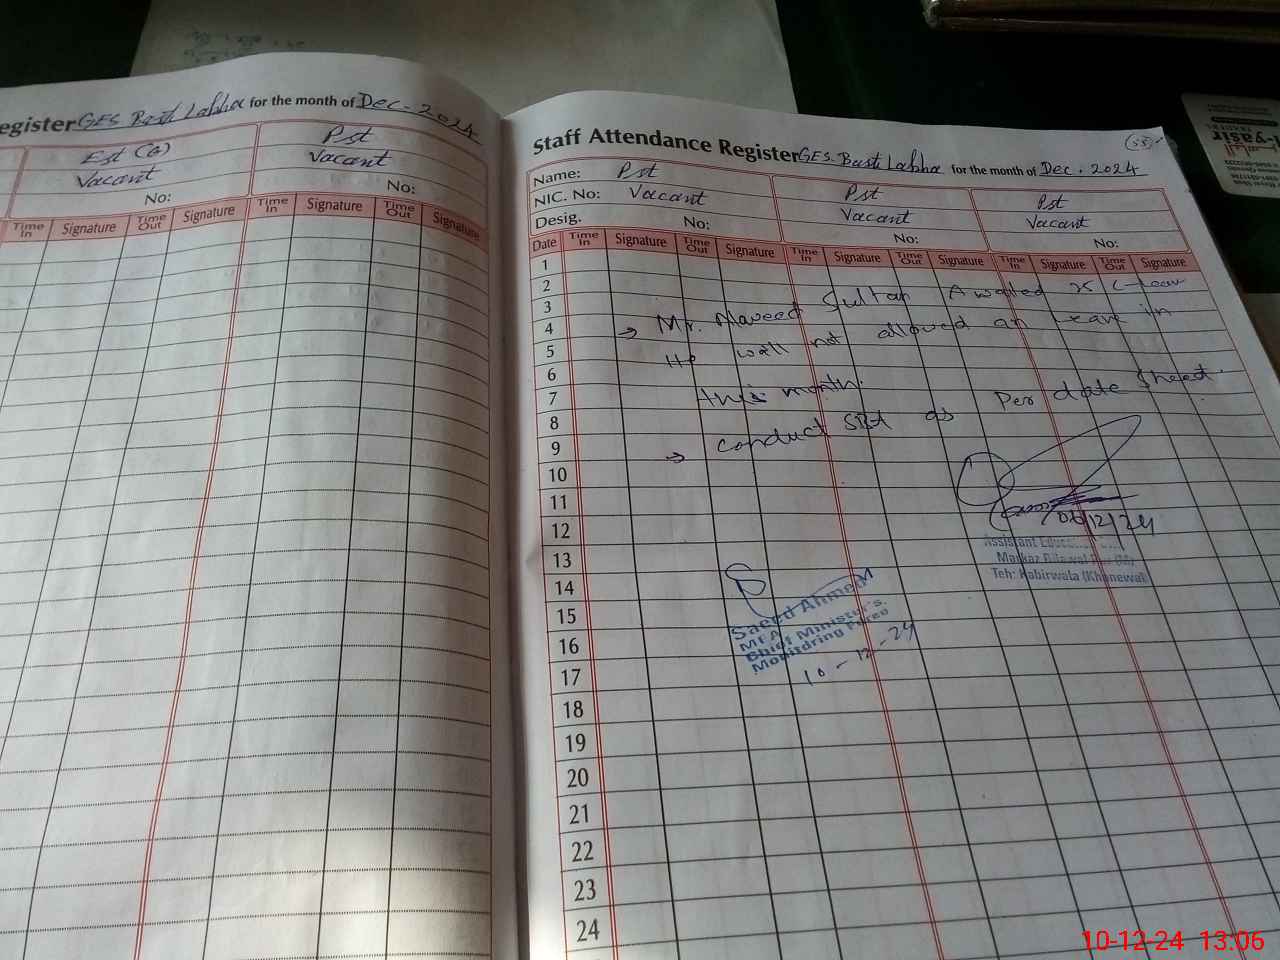 egister GES Basti Labha for the month of Dec - 2024
Est (G)
Vacant
No:
Pst
Vacant
No:
Time In Signature Time Out Signature Time In Signature Time Out Signature
(55)
Staff Attendance Register GES. Basti Labha for the month of Dec. 2024
Name: Pst Pst Pst
NIC. No: Vacant Vacant Vacant
Desig. No: No: No:
Date Time In Signature Time Out Signature Time In Signature Time Out Signature Time In Signature Time Out Signature
1
2
3
4
5
6
7
8
9
10
11
12
13
14
15
16
17
18
19
20
21
22
23
24
→ Mr. Naveed Sultan Awaled 25 C-leav
He will not allowed an Leave in
this month.
→ Conduct SBA as Per date Sheet.
06/12/24
Assistant Education
Markaz
Teh: Kabirwala (Khanewal)
Saeed Ahmed
MEA
Chief Minister's
Monitoring Force
10-12-24
Yasir
10-12-24 13:06